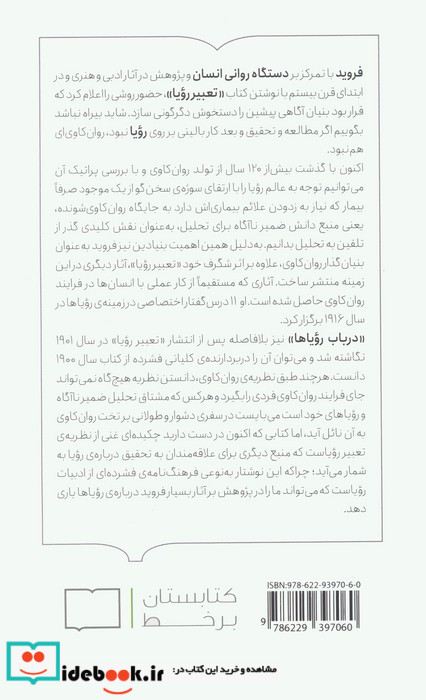 فروید با تمرکز بر دستگاه روانی انسان و پژوهش در آثار ادبی و هنری و در
ابتدای قرن بیستم با نوشتن کتاب «تعبیر رؤیا»، حضور روشی را اعلام کرد که
قرار بود بنیان آگاهی پیشین را دستخوش دگرگونی سازد. شاید بیراه نباشد
بگوییم اگر مطالعه و تحقیق و بعد کار بالینی بر روی رؤیا نبود، روان‌کاوی‌ای
هم نبود.
اکنون با گذشت بیش از ۱۲۰ سال از تولد روان‌کاوی و با بررسی پراتیک آن
می‌توانیم توجه به عالم رؤیا را با ارتقای سوژه‌ی سخن‌گو از یک موجود صرفاً
بیمار که نیاز به زدودن علائم بیماری‌اش دارد به جایگاه روان‌کاوی‌شونده،
یعنی منبع دانش ضمیر ناآگاه برای تحلیل، به‌عنوان نقش کلیدی گذر از
تلقین به تحلیل بدانیم. به‌دلیل همین اهمیت بنیادین نیز فروید به‌عنوان
بنیان‌گذار روان‌کاوی، علاوه بر اثر شگرف خود «تعبیر رؤیا»، آثار دیگری در این
زمینه منتشر ساخت. آثاری که مستقیماً از کار عملی با انسان‌ها در فرایند
روان‌کاوی حاصل شده است. او ۱۱ درس‌گفتار اختصاصی در زمینه‌ی رؤیاها در
سال ۱۹۱۶ برگزار کرد.
«درباب رؤیاها» نیز بلافاصله پس از انتشار «تعبیر رؤیا» در سال ۱۹۰۱
نگاشته شد و می‌توان آن را دربردارنده‌ی کلیاتی فشرده از کتاب سال ۱۹۰۰
دانست. هرچند طبق نظریه‌ی روان‌کاوی، دانستن نظریه هیچ‌گاه نمی‌تواند
جای فرایند روان‌کاوی فردی را بگیرد و هرکس که مشتاق تحلیل ضمیر ناآگاه
و رؤیاهای خود است می‌بایست در سفری دشوار و طولانی بر تخت روان‌کاوی
به آن نائل آید، اما کتابی که اکنون در دست دارید چکیده‌ای غنی از نظریه‌ی
تعبیر رؤیاست که منبع دیگری برای علاقه‌مندان به تحقیق درباره‌ی رؤیا به
شمار می‌آید؛ چراکه این نوشتار به‌نوعی فرهنگ‌نامه‌ی فشرده‌ای از ادبیات
رؤیاست که می‌تواند ما را در پژوهش بر آثار بسیار فروید درباره‌ی رؤیاها یاری
دهد.
ISBN: 978-622-93970-6-0
9 786229 397060
کتابستان
برخط
مشاهده و خرید این کتاب در:
idebook.ir